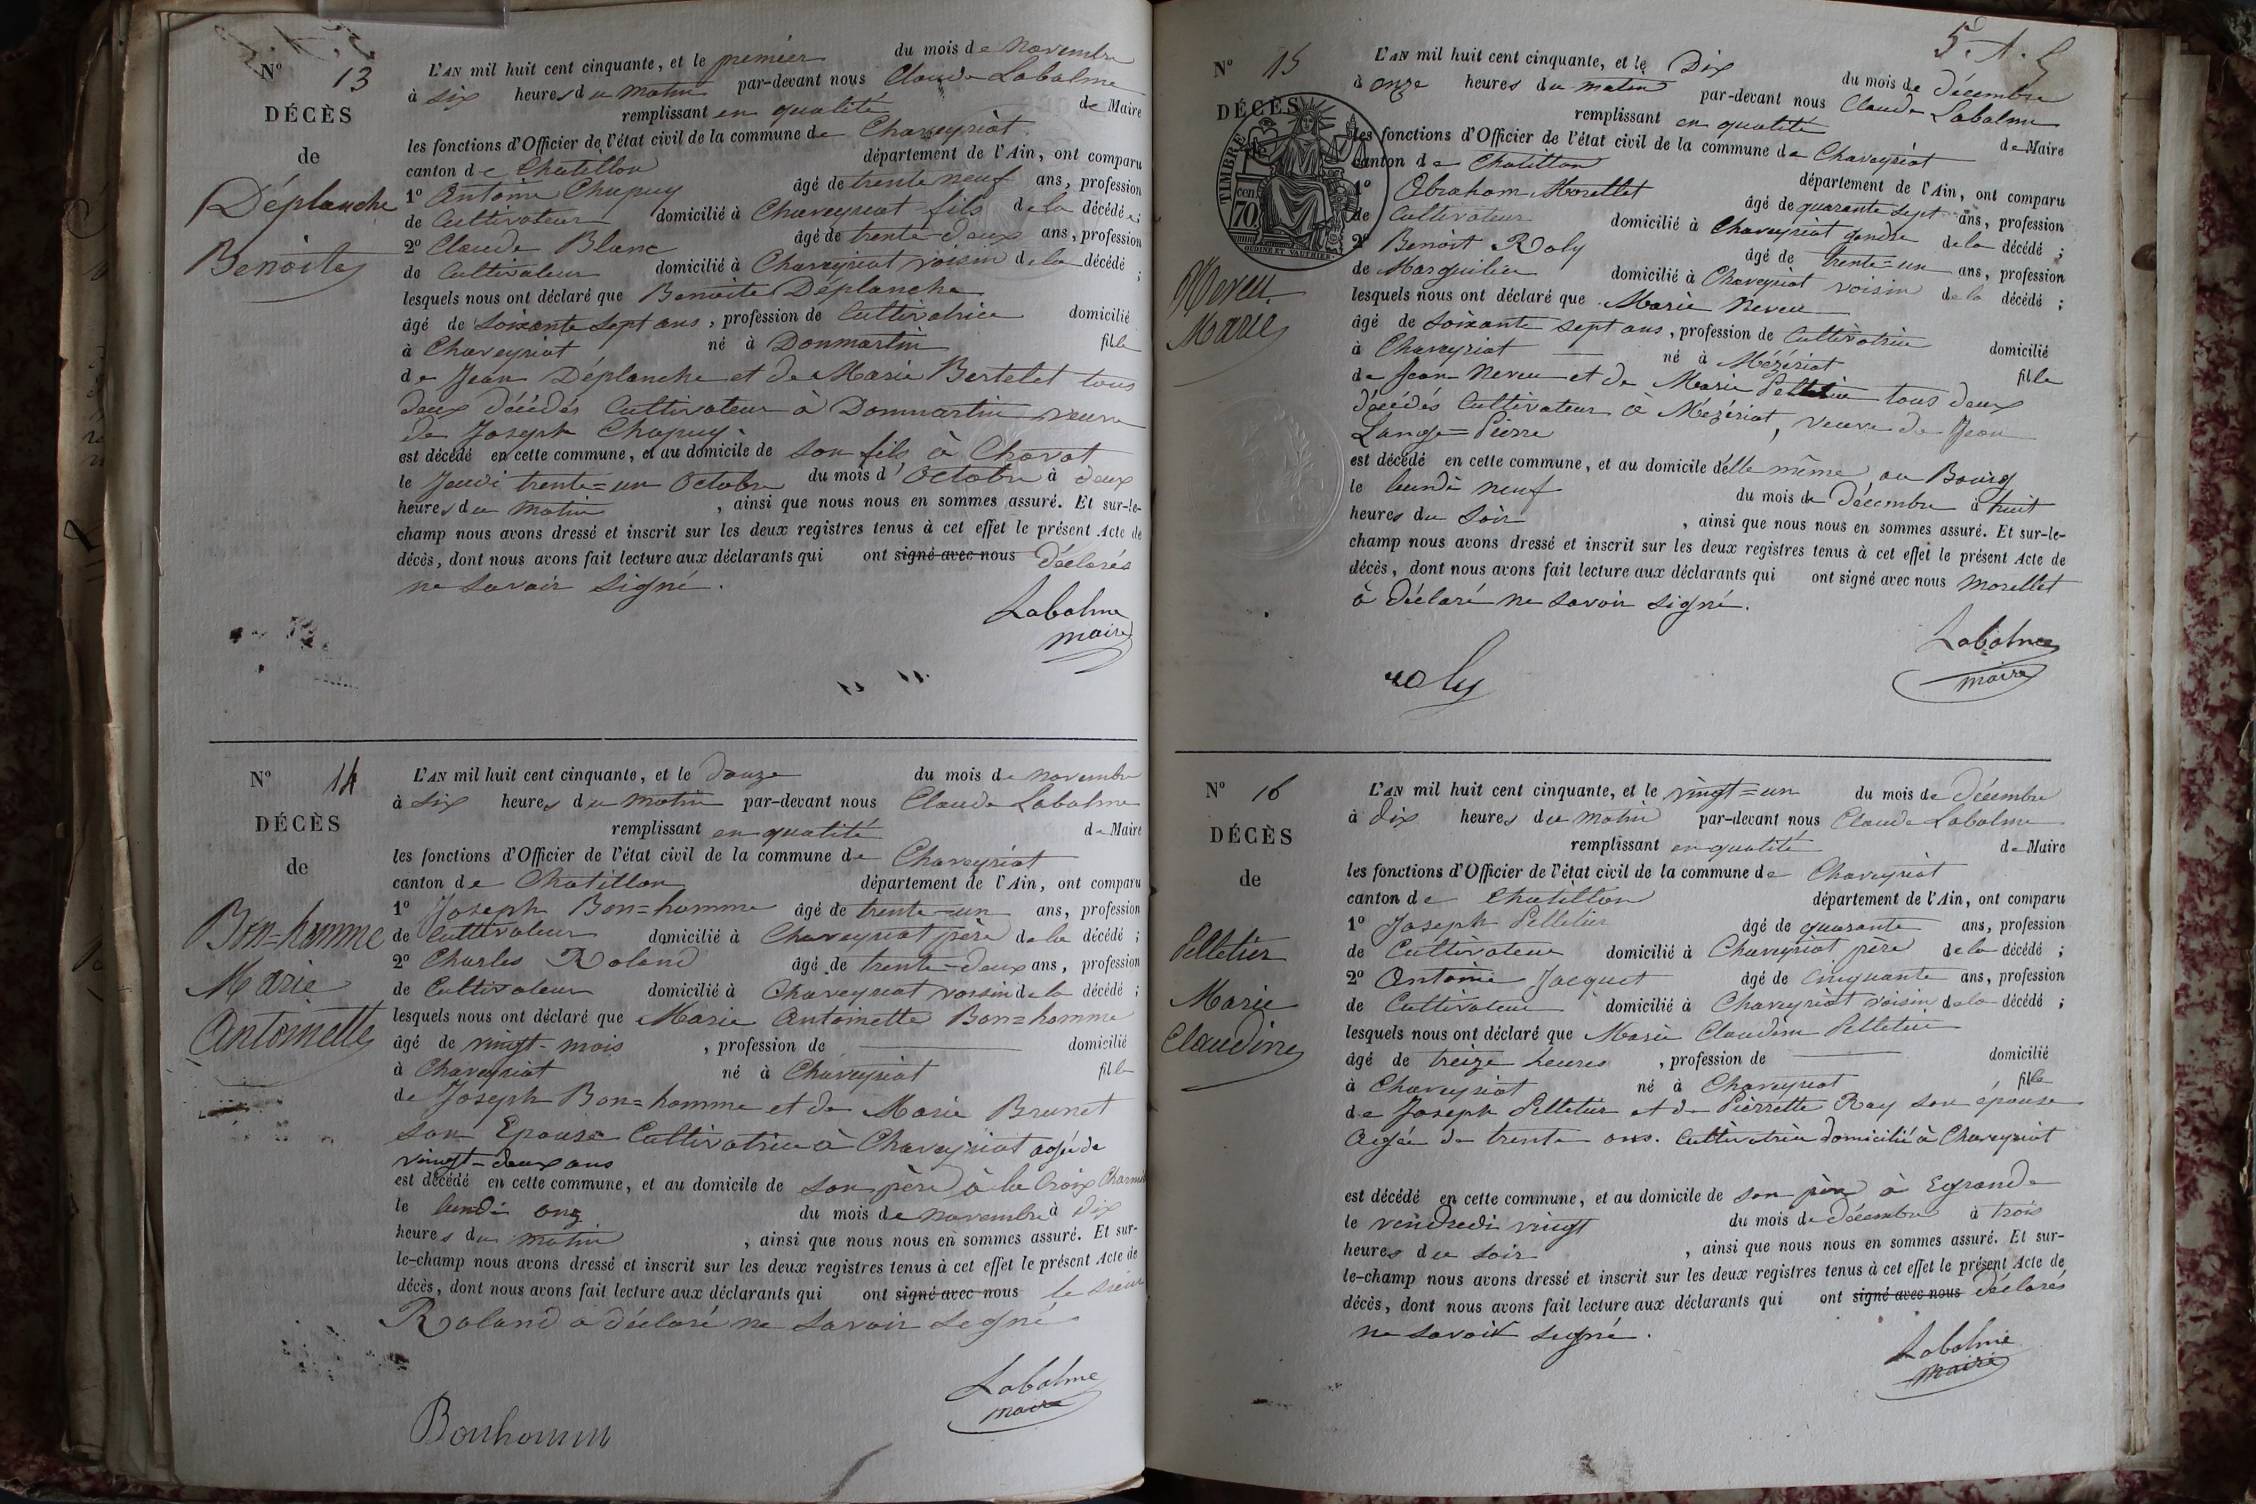 Nº 13
DÉCÈS
de
Déplanche
Benoite
L'AN mil huit cent cinquante, et le premier du mois de novembre
à six heures du matin par-devant nous Claude Labalme
remplissant en qualité de Maire
les fonctions d'Officier de l'état civil de la commune de Chaveyriat
canton de Chatillon département de l'Ain, ont comparu
1º Antoine Chapuy âgé de trente neuf ans, profession
de Cultivateur domicilié à Chaveyriat fils de la décédée;
2º Claude Blanc âgé de trente-deux ans, profession
de Cultivateur domicilié à Chaveyriat voisin de la décédé ;
lesquels nous ont déclaré que Benoite Déplanche
âgé de soixante sept ans, profession de Cultivatrice domicilié
à Chaveyriat né à Donmartin fille
de Jean Déplanche et de Marie Bertelet tous
deux décédés Cultivateur à Dommartin veuve
de Joseph Chapuy.
est décédé en cette commune, et au domicile de son fils à Chavat
le Jeudi trente=un Octobre du mois d'Octobre à deux
heures du matin, ainsi que nous nous en sommes assuré. Et sur-le-
champ nous avons dressé et inscrit sur les deux registres tenus à cet effet le présent Acte de
décès, dont nous avons fait lecture aux déclarants qui ont signé avec nous déclarés
ne savoir signé.
Labalme
maire
Nº 14
DÉCÈS
de
Bon=homme
Marie
Antoinette
L'AN mil huit cent cinquante, et le douze du mois de novembre
à six heures du matin par-devant nous Claude Labalme
remplissant en qualité de Maire
les fonctions d'Officier de l'état civil de la commune de Chaveyriat
canton de Chatillon département de l'Ain, ont comparu
1º Joseph Bon=homme âgé de trente-un ans, profession
de Cultivateur domicilié à Chaveyriat père de la décédé ;
2º Charles Roland âgé de trente-deux ans, profession
de Cultivateur domicilié à Chaveyriat voisin de la décédé ;
lesquels nous ont déclaré que Marie Antoinette Bon=homme
âgé de vingt-mois, profession de domicilié
à Chaveyriat né à Chaveyriat fille
de Joseph Bon=homme et de Marie Brunet
son Epouse Cultivatrice à Chaveyriat agée de
vingt-deux ans
est décédé en cette commune, et au domicile de son père à la Croix
le lundi onz du mois de novembre à dix
heures du matin, ainsi que nous nous en sommes assuré. Et sur-
le-champ nous avons dressé et inscrit sur les deux registres tenus à cet effet le présent Acte de
décès, dont nous avons fait lecture aux déclarants qui ont signé avec nous le sieur
Roland a déclaré ne savoir segné
Labalme
maire
Bonhomm
5. A. 5
Nº 15
DÉCÈS
TIMBRE
70
cen
OUDINE ET VAUTHIER
Neveu
Marie
L'AN mil huit cent cinquante, et le Dix du mois de décembre
à onze heures du matin par-devant nous Claude Labalme
remplissant en qualité de Maire
les fonctions d'Officier de l'état civil de la commune de Chaveyriat
canton de Chatillon département de l'Ain, ont comparu
1º Abraham Morellet âgé de quarante sept ans, profession
de Cultivateur domicilié à Chaveyriat gendre de la décédé ;
2º Benoit Roly âgé de trente=un ans, profession
de Marguilier domicilié à Chaveyriat voisin de la décédé ;
lesquels nous ont déclaré que Marie Neveu
âgé de soixante sept ans, profession de Cultivatrice domicilié
à Chaveyriat né à Mézériat fille
de Jean Neveu et de Marie Pelletier tous deux
décédés Cultivateur à Mézériat, veuve de Jean
Lange=Pierre
est décédé en cette commune, et au domicile d'elle même au Bourg
le lundi neuf du mois de décembre à huit
heures du soir, ainsi que nous nous en sommes assuré. Et sur-le-
champ nous avons dressé et inscrit sur les deux registres tenus à cet effet le présent Acte de
décès, dont nous avons fait lecture aux déclarants qui ont signé avec nous Morellet
à déclaré ne savoir signé.
Labalme
maire
roly
Nº 16
DÉCÈS
de
Pelletier
Marie
Claudine
L'AN mil huit cent cinquante, et le vingt=un du mois de décembre
à dix heures du matin par-devant nous Claude Labalme
remplissant en qualité de Maire
les fonctions d'Officier de l'état civil de la commune de Chaveyriat
canton de Chatillon département de l'Ain, ont comparu
1º Joseph Pelletier âgé de quarante ans, profession
de Cultivateur domicilié à Chaveyriat père de la décédé ;
2º Antoine Jacquet âgé de cinquante ans, profession
de Cultivateur domicilié à Chaveyriat voisin de la décédé ;
lesquels nous ont déclaré que Marie Claudine Pelletier
âgé de treize heures, profession de domicilié
à Chaveyriat né à Chaveyriat fille
de Joseph Pelletier et de Pierrette Ray son épouse
Agée de trente ans. Cultivatrice domicilié à Chaveyriat
est décédé en cette commune, et au domicile de son père à Egrande
le vendredi vingt du mois de décembre à trois
heures du soir, ainsi que nous nous en sommes assuré. Et sur-
le-champ nous avons dressé et inscrit sur les deux registres tenus à cet effet le présent Acte de
décès, dont nous avons fait lecture aux déclarants qui ont signé avec nous déclarés
ne savoir signé.
Labalme
maire